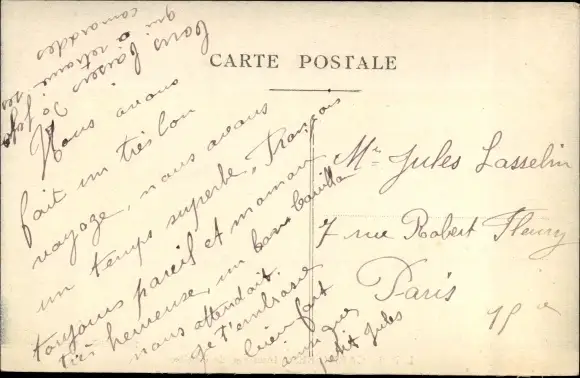 CARTE POSTALE
Nous avons
fait un très bon
voyage, nous avons
un temps superbe, François
toujours pareil et maman
très heureuse, un bon bouillon
nous attendait.
Je t'embrasse
bien fort
ainsi que
petit Jules
bons baisers
qui a retrouvé ses
camarades
Mr Jules Lasselin
7 rue Robert Fleury
Paris
15e